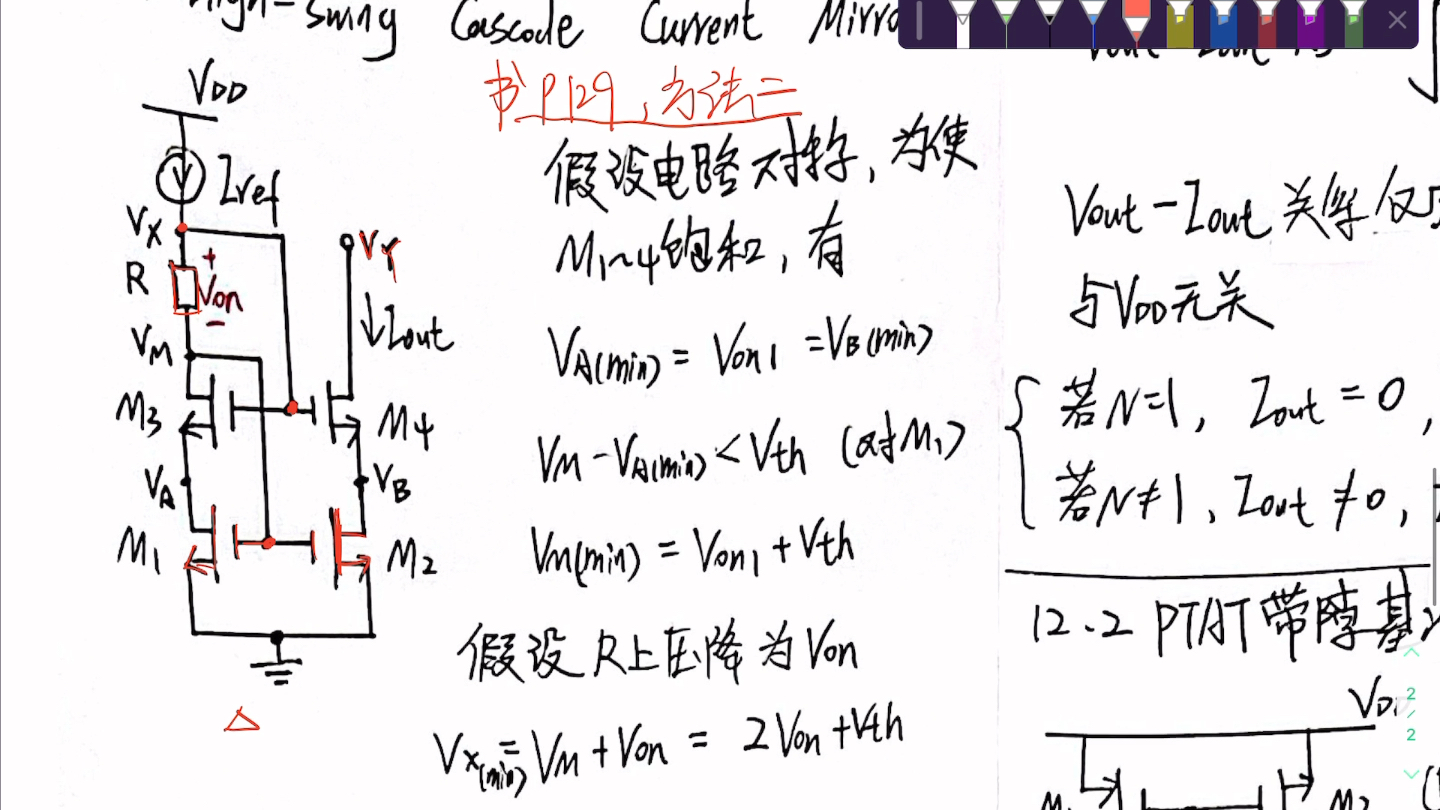 High-Swing Cascode Current Mirro
书P129,方法二
VDD
Iref
VX
R
+
Von
-
VY
↓Iout
VM
M3
M4
VA
VB
M1
M2
△
假设电路对称,为使
M1~4饱和,有
VA(min) = Von1 =VB(min)
VM-VA(min)<Vth (对M1)
VM(min) = Von1+Vth
假设R上压降为Von
VX(min) = VM+Von = 2Von+Vth
Vout-Iout 关系仅与
与VDD无关
若N=1, Iout = 0,
若N≠1, Iout ≠0,
12.2 PTAT带隙基
VD
M1
M2
2
/
2